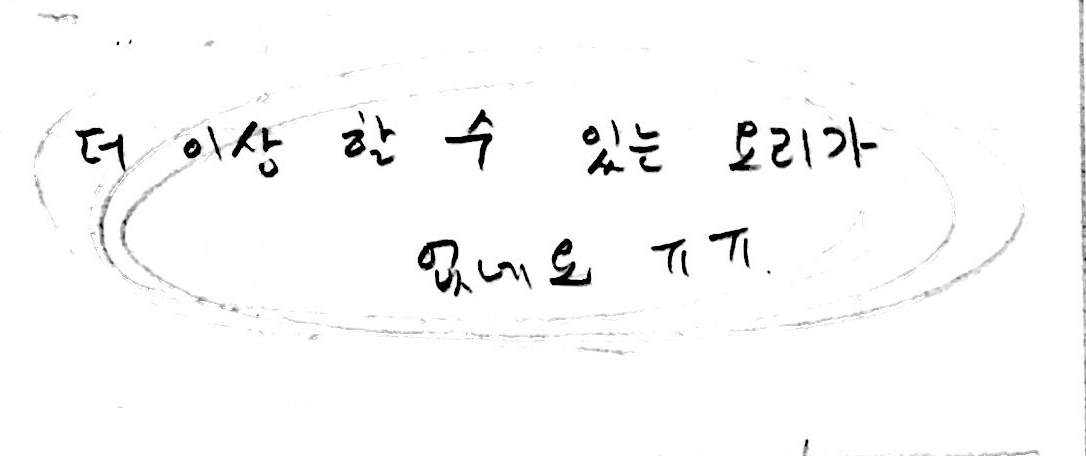 더 이상 할 수 있는 요리가
없네요 ㅠㅠ.